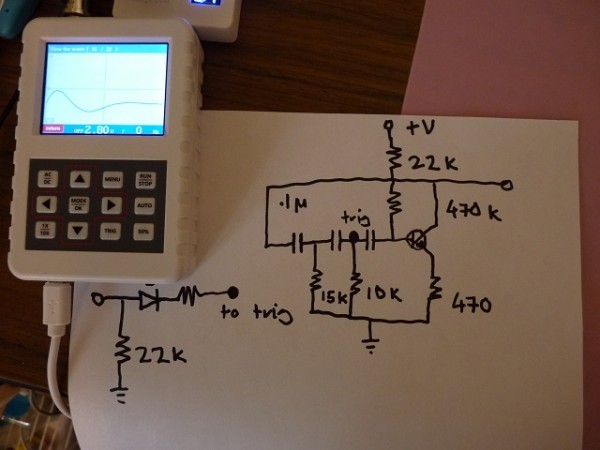 2.80
AC
DC
MENU
RUN
STOP
MODE
OK
AUTO
1X
10X
TRIG
50%
+V
22K
.1µ
trig
470K
15K
10K
470
to trig
22K